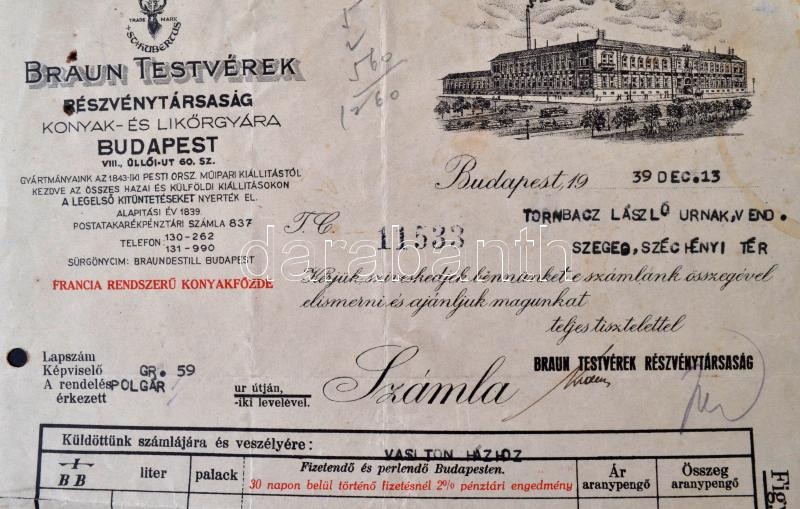 TRADE MARK
ST. HUBERTUS
BRAUN TESTVÉREK
RÉSZVÉNYTÁRSASÁG
KONYAK- ÉS LIKŐRGYÁRA
BUDAPEST
VIII., ÜLLŐI-UT 60. SZ.
GYÁRTMÁNYAINK AZ 1843-IKI PESTI ORSZ. MŰIPARI KIÁLLITÁSTÓL
KEZDVE AZ ÖSSZES HAZAI ÉS KÜLFÖLDI KIÁLLITÁSOKON
A LEGELSŐ KITÜNTETÉSEKET NYERTÉK EL.
ALAPITÁSI ÉV 1839.
POSTATAKARÉKPÉNZTÁRI SZÁMLA 837
TELEFON: 130-262
131-990
SÜRGÖNYCIM: BRAUNDESTILL BUDAPEST
FRANCIA RENDSZERŰ KONYAKFŐZDE
5
2
560
1260
Budapest, 19 39 DEC. 13
T. C. TORNBACZ LÁSZLÓ URNAK, VEND.
11533
SZEGED, SZÉCHÉNYI TÉR
darabanth
Kérjük, sziveskedjék bennünket e számlánk összegével
elismerni és ajánljuk magunkat
teljes tisztelettel
BRAUN TESTVÉREK RÉSZVÉNYTÁRSASÁG
Lapszám
Képviselő GR. 59
A rendelés POLGÁR ur útján,
érkezett -iki levelével.
Számla
Küldöttünk számlájára és veszélyére: VASUTON HÁZHOZ
I
B B
liter
palack
Fizetendő és perlendő Budapesten.
30 napon belül történő fizetésnél 2% pénztári engedmény
Ár
aranypengő
Összeg
aranypengő